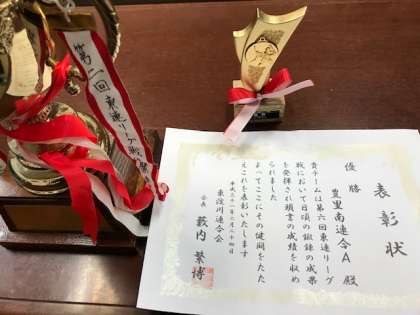 第二回東連リーグ戦
表彰状
優勝
豊里南連合A 殿
貴チームは第六回東連リーグ
戦において日頃の鍛錬の成果
を発揮され頭書の成績を収め
られました
よってここにその健闘をたた
えこれを表彰いたします
平成三十一年二月二十四日
東淀川連合会
会長 薮内 繁博